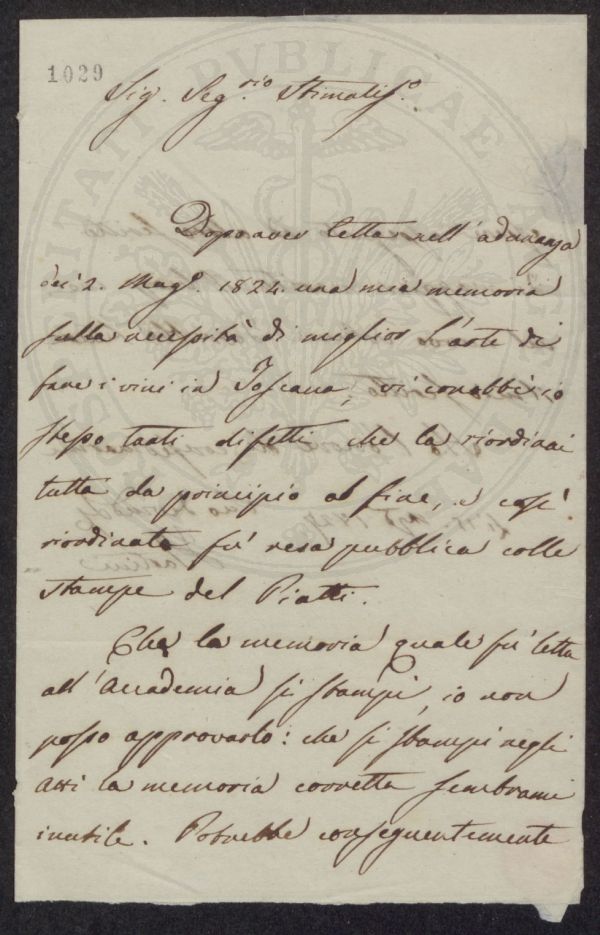 1029
Sig. Seg.rio Stimatis.o
Dopo aver letta nell'adunanza
dei 2. Mag.o 1824 una mia memoria
sulla necessità di miglior l'arte di
fare i vini in Toscana, vi conobbi io
stesso tanti difetti che la riordinai
tutta da principio al fine, e così
riordinata fu resa pubblica colle
stampe del Piatti.
Che la memoria quale fu letta
all'Accademia si stampi, io non
posso approvarlo: che si stampi negli
Atti la memoria corretta sembrami
inutile. Potrebbe conseguentemente